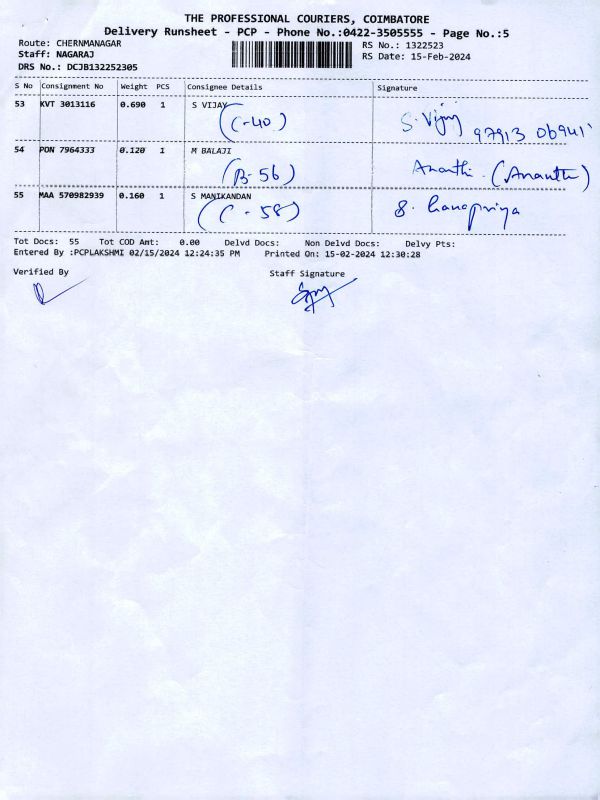 THE PROFESSIONAL COURIERS, COIMBATORE
Delivery Runsheet - PCP - Phone No.:0422-3505555 - Page No.:5
Route: CHERNMANAGAR
Staff: NAGARAJ
DRS No.: DCJB132252305
RS No.: 1322523
RS Date: 15-Feb-2024
S No Consignment No Weight PCS Consignee Details Signature
53 KVT 3013116 0.690 1 S VIJAY
(C-40) S. Vijay 97913 06941
54 PON 7964333 0.120 1 M BALAJI
(B-56) Ananthi. (Ananthi)
55 MAA 570982939 0.160 1 S MANIKANDAN
(C-58)
Tot Docs: 55 Tot COD Amt: 0.00 Delvd Docs: Non Delvd Docs: Delvy Pts:
Entered By :PCPLAKSHMI 02/15/2024 12:24:35 PM Printed On: 15-02-2024 12:30:28
Verified By Staff Signature